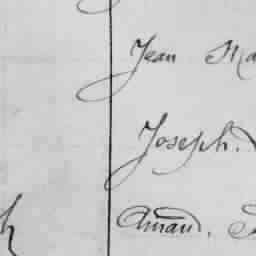 Jean Ma
Joseph.
Amand.
h